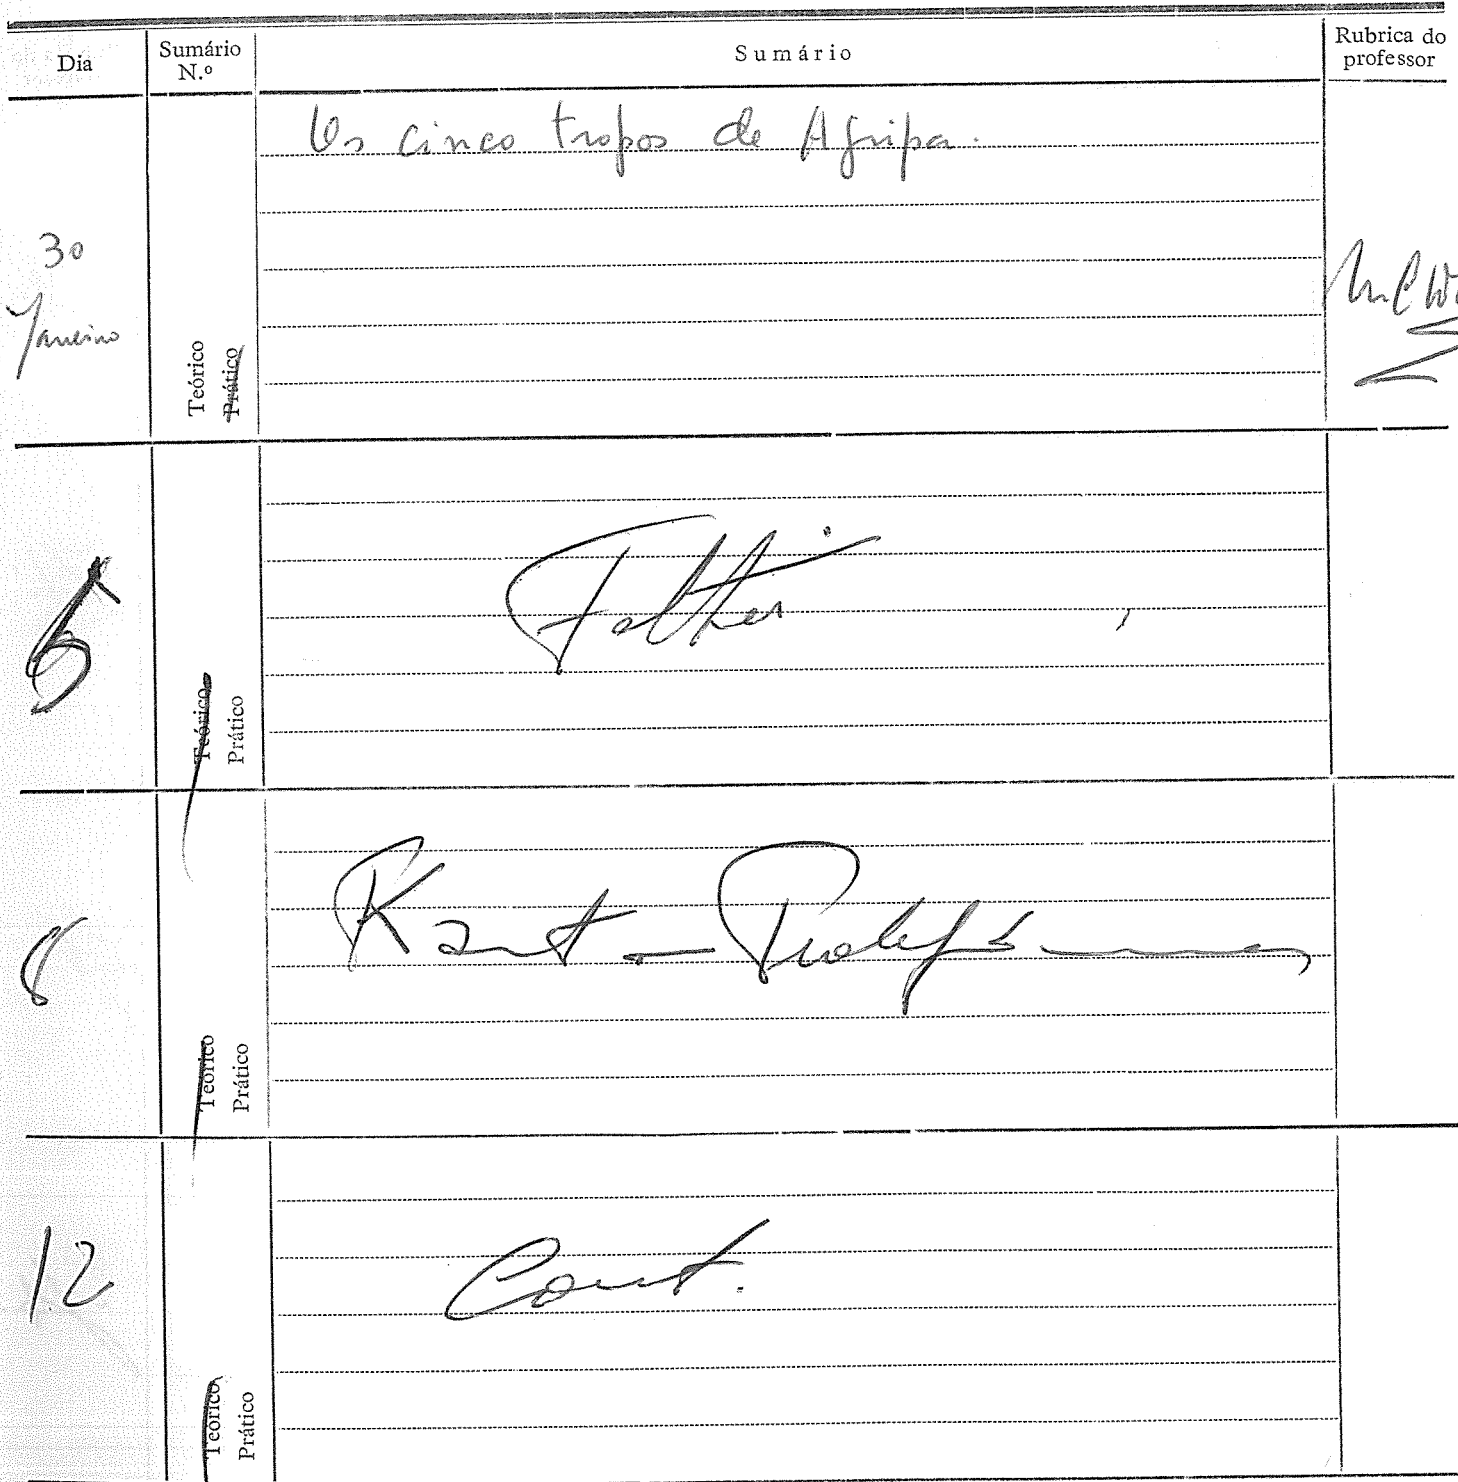 Dia
Sumário N.º
Sumário
Rubrica do professor
30 Janeiro
Teórico
Prático
Os cinco tropos de Agripa.
5
Teórico
Prático
Faltei
8
Teórico
Prático
Kant – Prolegómenos
12
Teórico
Prático
Cont.